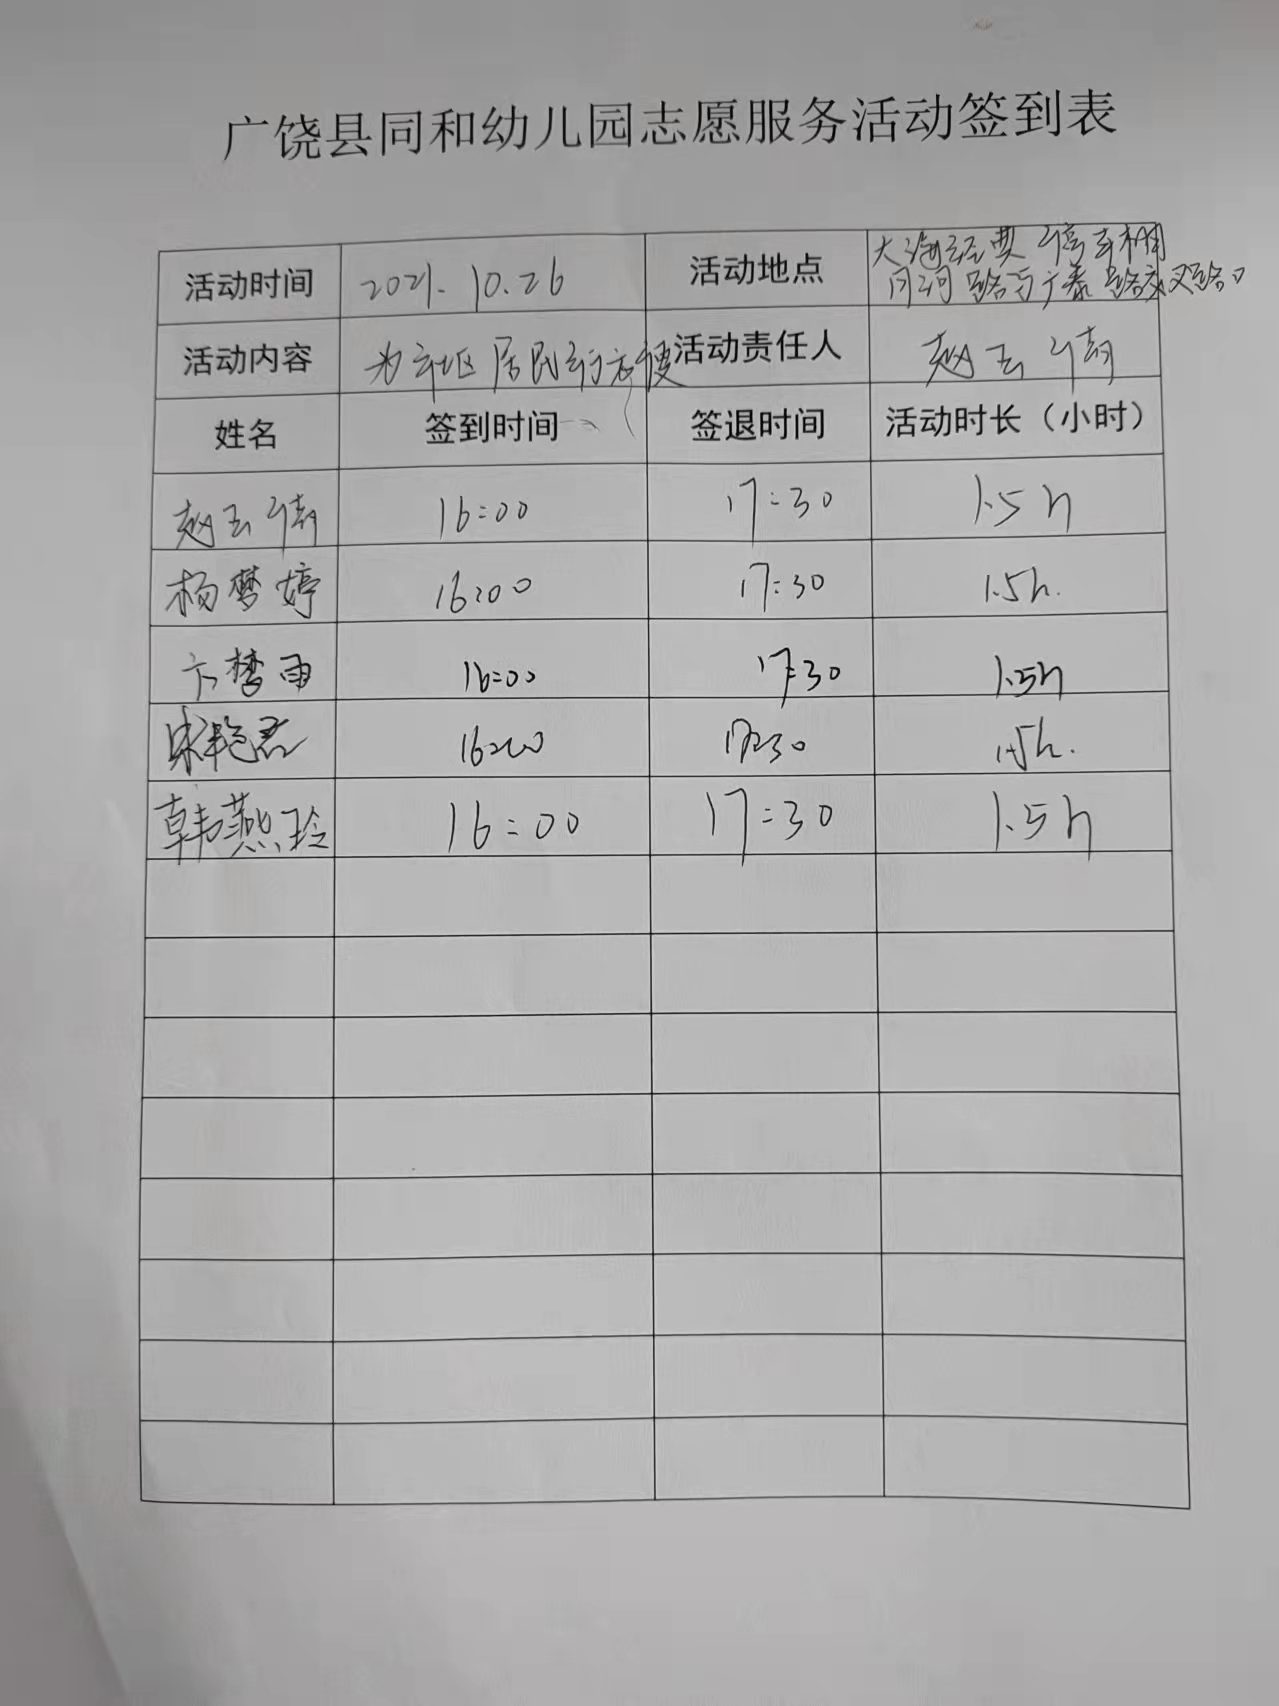 广饶县同和幼儿园志愿服务活动签到表
活动时间 2021.10.26 活动地点 大海经典 停车棚
月河路与广泰路交叉路口
活动内容 为社区居民行方便 活动责任人 赵玉倩
姓名 签到时间 签退时间 活动时长（小时）
赵玉倩 16:00 17:30 1.5h
杨梦婷 16:00 17:30 1.5h.
卞梦雨 16:00 17:30 1.5h
宋艳君 16:00 17:30 1.5h.
韩燕玲 16:00 17:30 1.5h